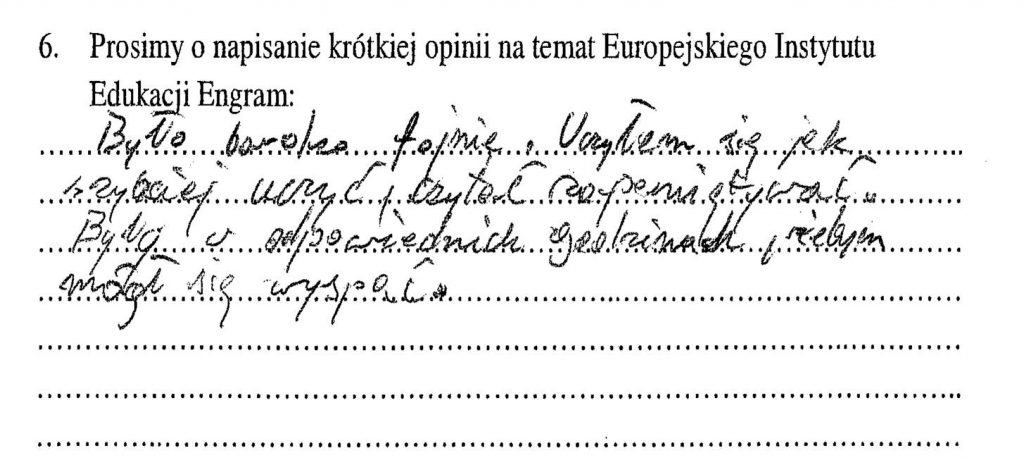 6. Prosimy o napisanie krótkiej opinii na temat Europejskiego Instytutu
Edukacji Engram:
Było bardzo fajnie. Uczyłem się jak
szybciej uczyć, czytać zapamiętywać.
Były w odpowiednich godzinach, żebym
mógł się wyspać.